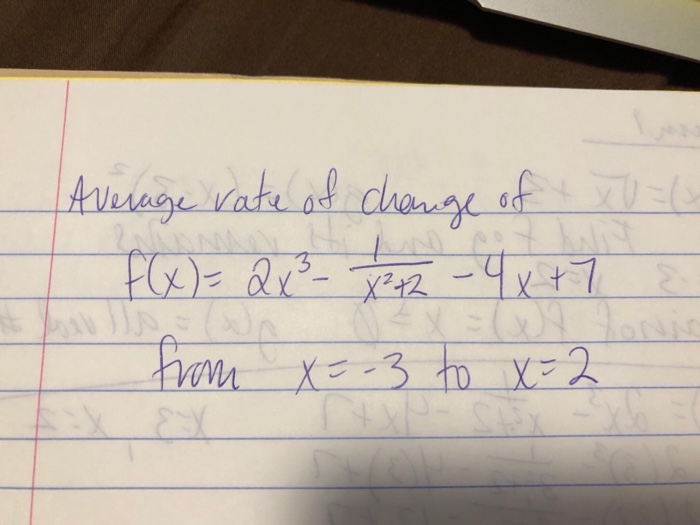 Average rate of change of
f(x) = 2x³ - 1/(x²+2) - 4x + 7
from x = -3 to x = 2